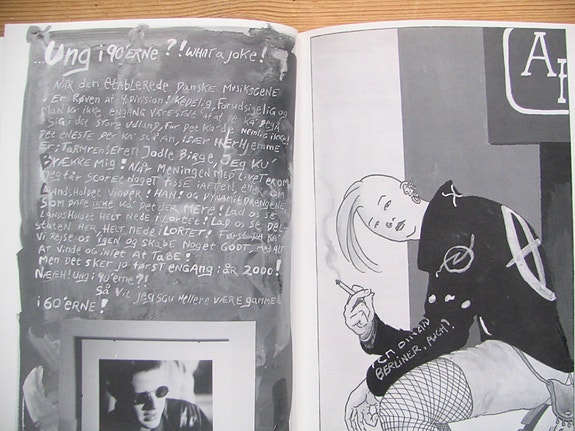 ...Ung i 90'erne?! What a joke!
Når den etablerede Danske Musikscene
er Røven af 4. Division! Kedelig, Forudsigelig og
man ka' ikke engang være stolte af at de ka' begå
sig i det store udland, for det ka' de nemlig ikke!
Det eneste der ka' 
er: Tarmrenseren Jodle Birge, Jeg ku'
brække mig! Når Meningen med livet er om
jeg får scoret noget fisse i aften, eller om
Landsholdet vinder! HAN! og Dynamitdrengene
som bare ikke ka' det der mere! Lad os se
Landsholdet helt nede i Lortet! Lad os se hel
staten her, helt nede i LORTET! Først da ka'
vi rejse os igen og skabe noget godt, med alt
at vinde og intet at tabe!
Men det sker jo først engang i år 2000!
Næeh! Ung i 90'erne?!
Så vil jeg sgu hellere være gammel
i 60'erne!
A
Ich bin ein
Berliner, auch!